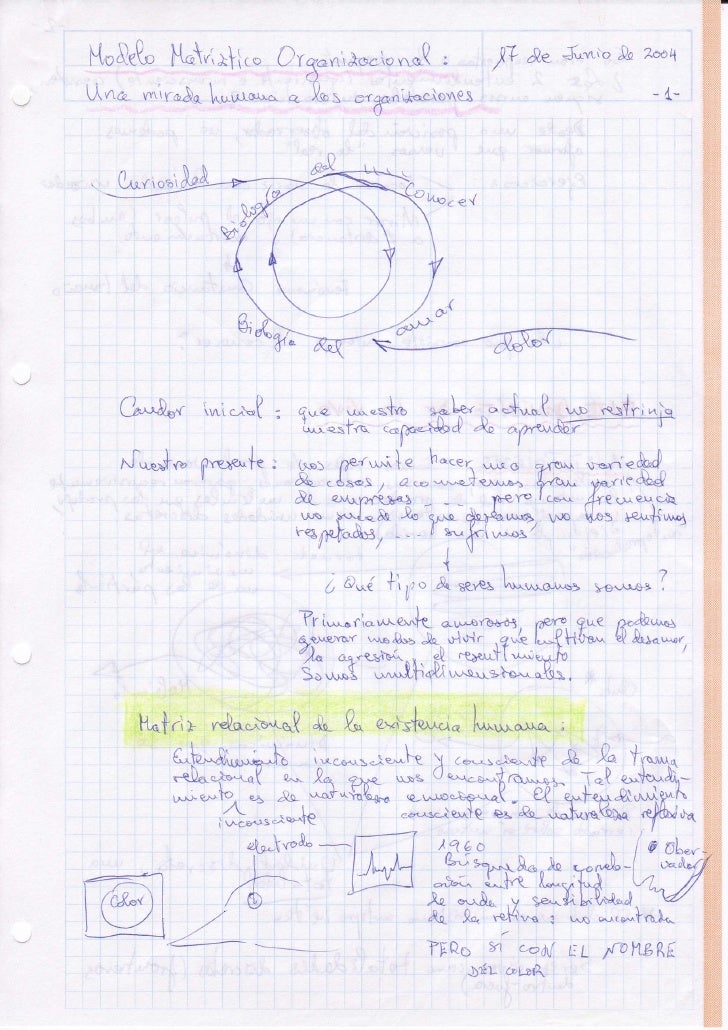 Modelo Matriztico Organizacional :
17 de Junio de 2004
Una mirada humana a las organizaciones
-1-
Curiosidad
Biologia del Conocer
Biología del amar
dolor
Candor inicial : que nuestro saber actual no restrinja
nuestra capacidad de aprender
Nuestro presente : nos permite hacer una gran variedad
de cosas, acometemos gran variedad
de empresas ..... pero con frecuencia
no sucede lo que deseamos, no nos sentimos
respetados, .... sufrimos
¿Qué tipo de seres humanos somos?
Primariamente amorosos, pero que podemos
generar modos de vivir que cultivan el desamor,
la agresión, el resentimiento
Somos multidimensionales.
Matriz relacional de la existencia humana :
Entendimiento inconsciente y consciente de la trama
relacional en la que nos encontramos. Tal entendi-
miento es de naturaleza emocional. El entendimiento
inconsciente
consciente es de naturaleza reflexiva
electrodo
Color
1960
Búsqueda de correla-
ción entre longitud
de onda y sensibilidad
de la retina : no encontrada
PERO SÍ CON EL NOMBRE
DEL COLOR
Obser-
vador